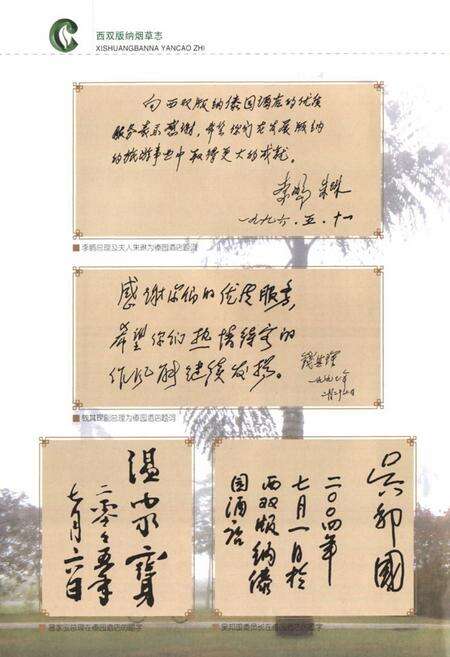 西双版纳烟草志
XISHUANGBANNA YANCAO ZHI
向西双版纳傣园酒店的优质
服务表示感谢,希望你们在发展版纳
的旅游事业中取得更大的成就。
李鹏 朱琳
一九九六.五.十一
李鹏总理及夫人朱琳为傣园酒店题词
感谢你们的优良服务,
希望你们热情待客的
作风能继续发扬。
钱其琛
一九九七年
钱其琛副总理为傣园酒店题词
温家宝
二零零五年
七月六日
温家宝总理在傣园酒店的题字
吴邦国
二〇〇四年
七月一日於
西双版纳傣
园酒店
吴邦国委员长在傣园酒店的题字